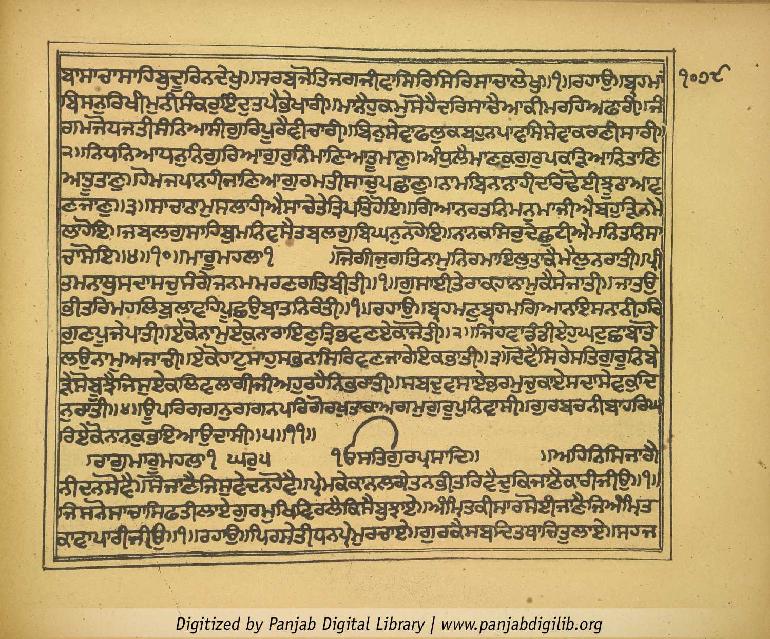 ਬਾਸਾਚਾਸਾਹਿਬੁਦੂਰਿਨਦੇਖੁ॥ਸਰਬਜੋਤਿਜਗਜੀਵਾਸਿਰਿਸਿਰਿਸਾਚਾਲੇਖੁ॥੧॥ਰਹਾਉ॥ਬ੍ਰਹਮਾ ੧੦੭੯
ਬਿਸਨੁਰਿਖੀਮੁਨੀਸੰਕਰੁਇੰਦੁਤਪੈਭੇਖਾਰੀ॥ਮਾਨੈਹੁਕਮੁਸੋਹੈਦਰਿਸਾਚੈਆਕੀਮਰਹਿਅਫਾਰੀ॥ਜੰ
ਗਮਜੋਧਜਤੀਸੰਨਿਆਸੀਗੁਰਿਪੂਰੈਵੀਚਾਰੀ॥ਬਿਨੁਸੇਵਾਫਲੁਕਬਹੁਨਪਾਵਸਿਸੇਵਾਕਰਣੀਸਾਰੀ॥
੨॥ਨਿਧਨਿਆਧਨੁਨਿਗੁਰਿਆਗੁਰੁਨਿੰਮਾਣਿਆਤੂਮਾਣੁ॥ਅੰਧੁਲੈਮਾਣਕੁਗੁਰੁਪਕੜਿਆਨਿਤਾਣਿ
ਆਤੂਤਾਣੁ॥ਹੋਮਜਪਾਨਹੀਜਾਣਿਆਗੁਰਮਤੀਸਾਚੁਪਛਾਣੁ॥ਨਾਮਬਿਨਾਨਾਹੀਦਰਿਢੋਈਝੂਠਾਆਵ
ਣਜਾਣੁ॥੩॥ਸਾਚਾਨਾਮੁਸਲਾਹੀਐਸਾਚੇਤੇਤ੍ਰਿਪਤਿਹੋਇ॥ਗਿਆਨਰਤਨਿਮਨੁਮਾਜੀਐਬਹੁੜਿਨਮੈ
ਲਾਹੋਇ॥ਜਬਲਗੁਸਾਹਿਬੁਮਨਿਵਸੈਤਬਲਗੁਬਿਘਨੁਨਹੋਇ॥ਨਾਨਕਸਿਰੁਦੇਛੁਟੀਐਮਨਿਤਨਿਸਾ
ਚਾਸੋਇ॥੪॥੧੦॥ਮਾਰੂਮਹਲਾ੧ ॥ਜੋਗੀਜੁਗਤਿਨਾਮੁਨਿਰਮਾਇਲੁਤਾਕੈਮੈਲੁਨਰਾਤੀ॥ਪ੍ਰੀ
ਤਮਨਾਥੁਸਦਾਸਚੁਸੰਗੇਜਨਮਮਰਣਗਤਿਬੀਤੀ॥੧॥ਗੁਸਾਈਤੇਰਾਕਹਾਨਾਮੁਕੈਸੇਜਾਤੀ॥ਜਾਤਉ
ਭੀਤਰਿਮਹਲਿਬੁਲਾਵਹਿਪੂਛਉਬਾਤਨਿਰੰਤੀ॥੧॥ਰਹਾਉ॥ਬ੍ਰਹਮਣੁਬ੍ਰਹਮਗਿਆਨਇਸਨਾਨੀਹਰਿ
ਗੁਣਪੂਜੇਪਾਤੀ॥ਏਕੋਨਾਮੁਏਕੁਨਾਰਾਇਣੁਤ੍ਰਿਭਵਣਏਕਾਜੋਤੀ॥੨॥ਜਿਹਵਾਡੰਡੀਇਹੁਘਟੁਛਾਬਾਤੋ
ਲਉਨਾਮੁਅਜਾਚੀ॥ਏਕੋਹਾਟੁਸਾਹੁਸਭਨਾਸਿਰਿਵਣਜਾਰੇਇਕਭਾਤੀ॥੩॥ਦੋਵੈਸਿਰੇਸਤਿਗੁਰੂਨਿਬੇ
ੜੇਸੋਬੂਝੈਜਿਸੁਏਕਲਿਵਲਾਗੀਜੀਅਹੁਰਹੈਨਿਭਰਾਤੀ॥ਸਬਦੁਵਸਾਏਭਰਮੁਚੁਕਾਏਸਦਾਸੇਵਕੁਦਿ
ਨੁਰਾਤੀ॥੪॥ਊਪਰਿਗਗਨੁਗਗਨਪਰਿਗੋਰਖੁਤਾਕਾਅਗਮੁਗੁਰੂਪੁਨਿਵਾਸੀ॥ਗੁਰਬਚਨੀਬਾਹਰਿਘ
ਰਿਏਕੋਨਾਨਕੁਭਇਆਉਦਾਸੀ॥੫॥੧੧॥
ਰਾਗੁਮਾਰੂਮਹਲਾ੧ ਘਰੁ੫ ੴਸਤਿਗੁਰਪ੍ਰਸਾਦਿ॥ ॥ਅਹਿਨਿਸਿਜਾਗੈ
ਨੀਦਨਸੋਵੈ॥ਸੋਜਾਣੈਜਿਸੁਵੇਦਨਹੋਵੈ॥ਪ੍ਰੇਮਕੇਕਾਨਲਗੇਤਨਭੀਤਰਿਵੈਦੁਕਿਜਾਣੈਕਾਰੀਜੀਉ॥੧॥
ਜਿਸਨੋਸਾਚਾਸਿਫਤੀਲਾਏ॥ਗੁਰਮੁਖਿਵਿਰਲੇਕਿਸੈਬੁਝਾਏ॥ਅੰਮ੍ਰਿਤਕੀਸਾਰਸੋਈਜਾਣੈਜਿਅੰਮ੍ਰਿਤ
ਕਾਵਾਪਾਰੀਜੀਉ॥੧॥ਰਹਾਉ॥ਪਿਰਸੇਤੀਧਨਪ੍ਰੇਮੁਰਚਾਏ॥ਗੁਰਕੈਸਬਦਿਤਥਾਚਿਤੁਲਾਏ॥ਸਹਜ
Digitized by Panjab Digital Library | www.panjabdigilib.org